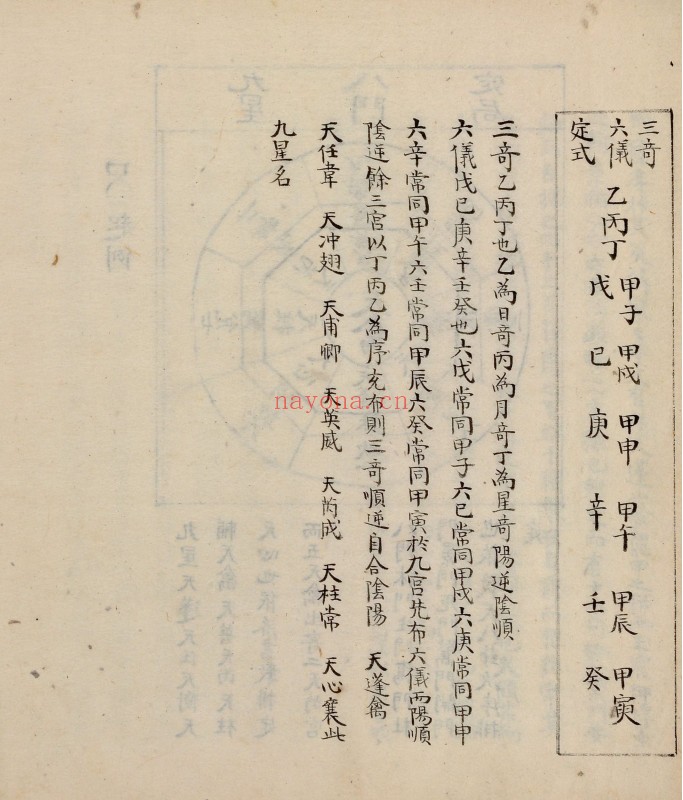 三奇
六儀
定式
乙丙丁
甲子 甲戌 甲申 甲午 甲辰 甲寅
戊 巳 庚 辛 壬 癸
三奇乙丙丁也乙為日奇丙為月奇丁為星奇陽逆陰順
六儀戊巳庚辛壬癸也六戊常同甲子六巳常同甲戌六庚常同甲申
六辛常同甲午六壬常同甲辰六癸常同甲寅於九宮先布六儀而陽順
陰逆餘三宮以丁丙乙為序充布則三奇順逆自合陰陽 天蓬禽
天任韋 天冲翅 天甫卿 天英威 天芮成 天柱常 天心襄此
九星名
nayona.cn